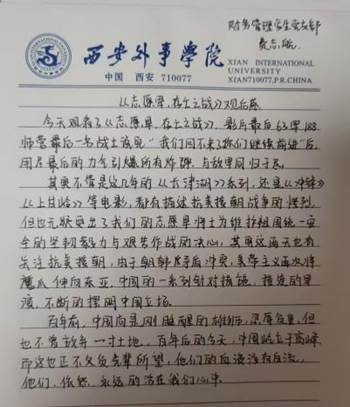 财务管理学生党支部
西安外事学院
XIAN INTERNATIONAL
UNIVERSITY
中国 西安 710077
XIAN710077,P.R.CHINA
《志愿军,存亡之战》观后感
今天观看了《志愿军,存亡之战》,影片最后63军188
师营最后一名战士说见"我们回不来了你们继续前进"后
用尽最后的力量引爆所有炸弹,与敌军同归于尽。
其实不管是这几年的《长津湖》系列,还是《冲锋》
《上甘岭》等电影,都有描述抗美援朝战争的惨烈,
但也无疑突出了我们的志愿军将士为维护祖国统一安
全的坚韧毅力与艰苦作战的决心,其实这两天也有
关注抗美援朝,由于朝韩矛盾冲突,美帝主义再次将
魔爪伸向东亚,中国的一系列针对措施,接连的
不断的摆明中国立场。
百年前,中国尚是刚睡醒的雄狮,
也不曾放弃一寸土地,百年后的今天,中国站立于高峰
而这也正不欠负先辈所望,他们的血液没有白流,
他们,依然,永远的活在我们心中。